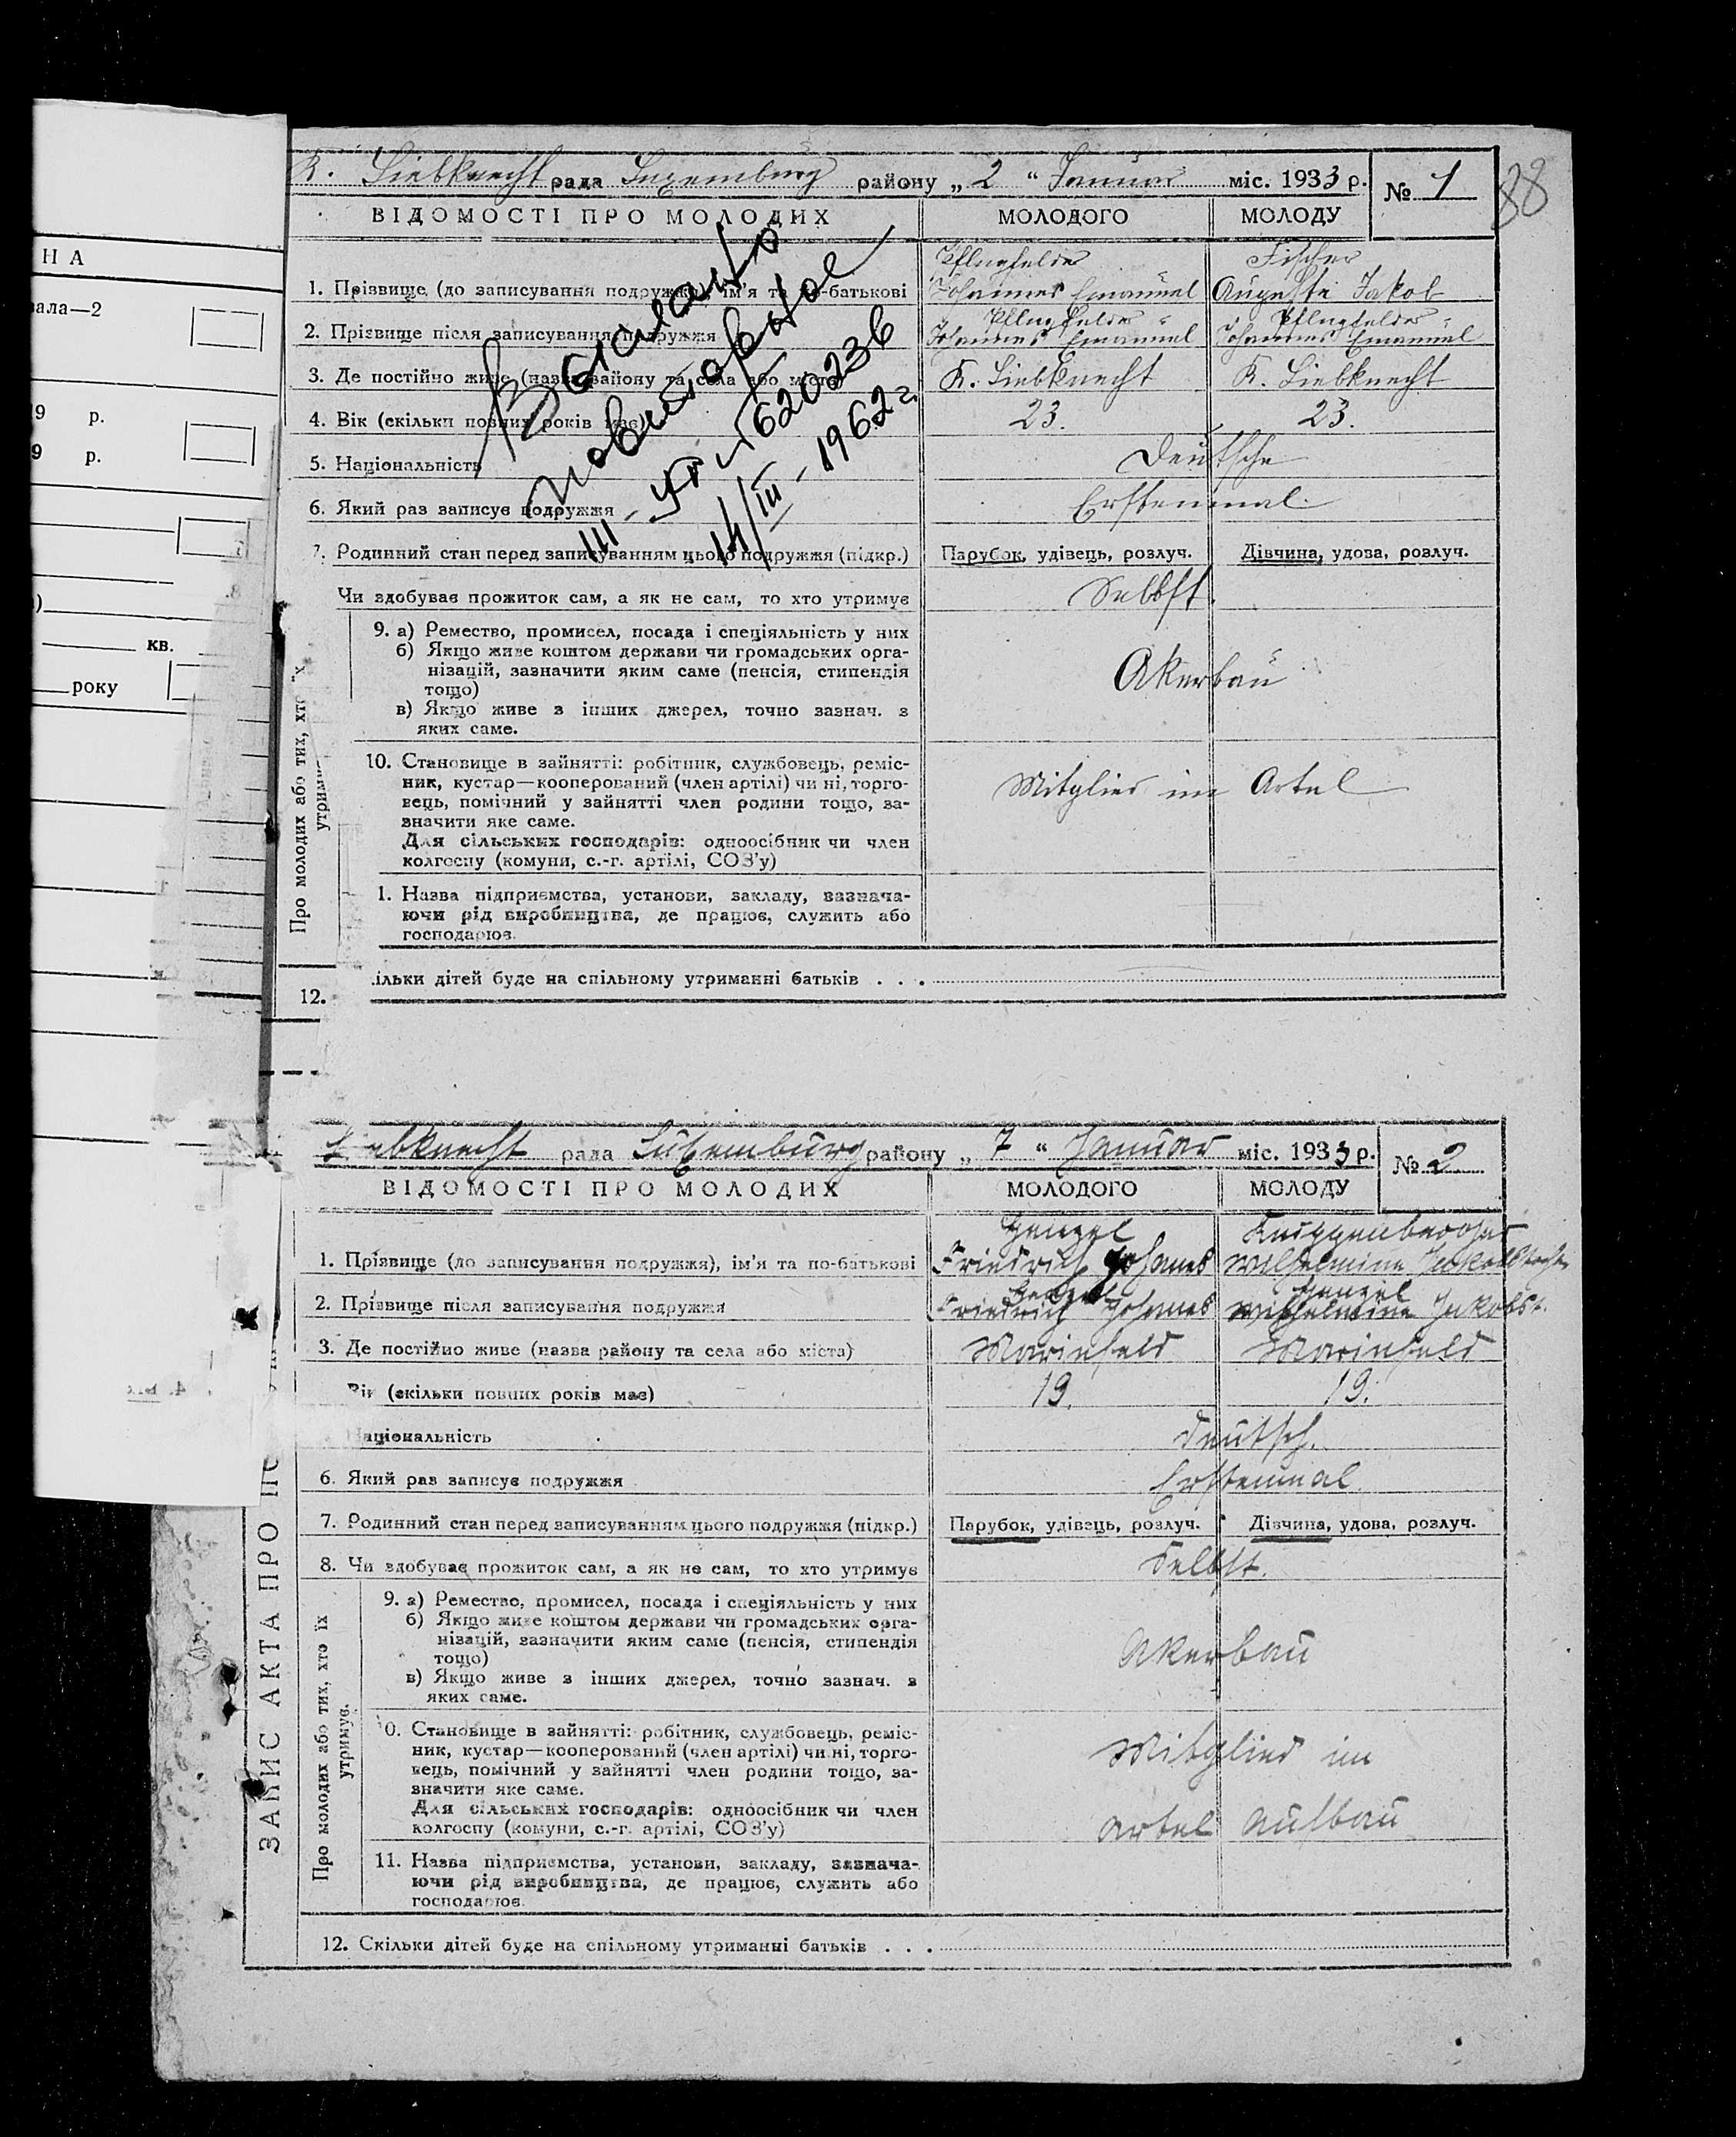 НА
ала—2
9 р.
9 р.
)
кв.
року
K. Liebknecht рада Luxemburg району „ 2 “ Januar міс. 1933 р. № 1
88
ВІДОМОСТІ ПРО МОЛОДИХ МОЛОДОГО МОЛОДУ
Pflugfelder Fischer
1. Прізвище (до записування подружжя) ім'я та по-батькові Johannes Emanuel Auguste Jakob
Pflugfelder Pflugfelder
2. Прізвище після записування подружжя Johannes Emanuel Johannes Emanuel
3. Де постійно живе (назва району та села або міста) K. Liebknecht K. Liebknecht
4. Вік (скільки повних років має) 23. 23.
5. Національність Deutsche
6. Який раз записує подружжя Erstenmal.
7. Родинний стан перед записуванням цього подружжя (підкр.) Парубок, удівець, розлуч. Дівчина, удова, розлуч.
Чи здобуває прожиток сам, а як не сам, то хто утримує Selbst.
9. а) Ремество, промисел, посада і спеціяльність у них
б) Якщо живе коштом держави чи громадських орга-
нізацій, зазначити яким саме (пенсія, стипендія
тощо)
Akerbau
в) Якщо живе з інших джерел, точно зазнач. з
яких саме.
10. Становище в зайнятті: робітник, службовець, реміс-
ник, кустар—кооперований (член артілі) чи ні, торго-
вець, помічний у зайнятті член родини тощо, за-
значити яке саме.
Mitglied im Artel
Для сільських господарів: одноосібник чи член
колгоспу (комуни, с.-г. артілі, СОЗ'у)
1. Назва підприємства, установи, закладу, зазнача-
ючи рід виробництва, де працює, служить або
господарює.
Про молодих або тих, хто їх
утримує
12. ільки дітей буде на спільному утриманні батьків . . .
повторное
III - УР № 620236
14/III - 1962 г.
Liebknecht рада Luxemburg району „ 7 “ Januar міс. 1933 р. № 2
ВІДОМОСТІ ПРО МОЛОДИХ МОЛОДОГО МОЛОДУ
1. Прізвище (до записування подружжя), ім'я та по-батькові Friedrich Johanes Wilhelmine
2. Прізвище після записування подружжя Friedrich Johanes Wilhelmine Jakobst.
3. Де постійно живе (назва району та села або міста) Marinfeld Marinfeld
Вік (скільки повних років має) 19. 19.
Національність Deutsch.
6. Який раз записує подружжя Erstenmal
7. Родинний стан перед записуванням цього подружжя (підкр.) Парубок, удівець, розлуч. Дівчина, удова, розлуч.
8. Чи здобуває прожиток сам, а як не сам, то хто утримує Selbst.
9. а) Ремество, промисел, посада і спеціяльність у них
б) Якщо живе коштом держави чи громадських орга-
нізацій, зазначити яким саме (пенсія, стипендія
тощо)
Akerbau
в) Якщо живе з інших джерел, точно зазнач. з
яких саме.
0. Становище в зайнятті: робітник, службовець, реміс-
ник, кустар—кооперований (член артілі) чи ні, торго-
вець, помічний у зайнятті член родини тощо, за-
значити яке саме.
Mitglied im
Для сільських господарів: одноосібник чи член
колгоспу (комуни, с.-г. артілі, СОЗ'у)
Artel Aufbau
11. Назва підприємства, установи, закладу, зазнача-
ючи рід виробництва, де працює, служить або
господарює.
Про молодих або тих, хто їх
утримує.
ЗАПИС АКТА ПРО
12. Скільки дітей буде на спільному утриманні батьків . . .